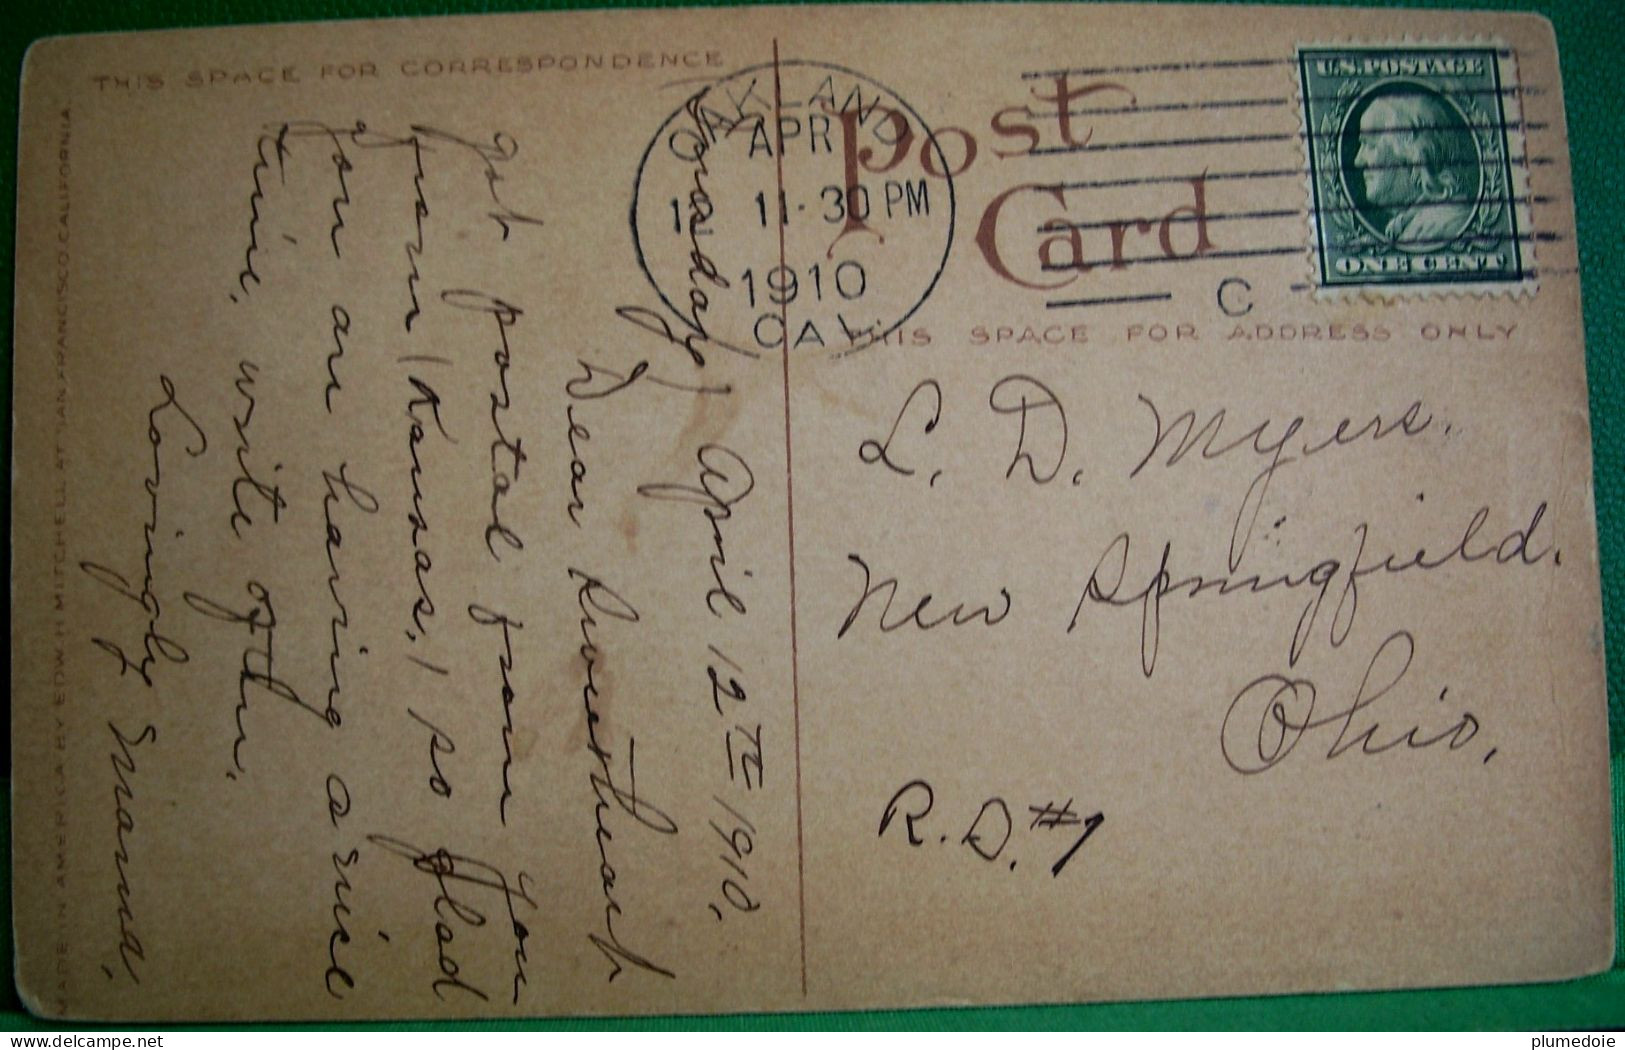 THIS SPACE FOR CORRESPONDENCE
Post
Card
THIS SPACE FOR ADDRESS ONLY
U.S. POSTAGE
ONE CENT
OAKLAND
APR
11-30 PM
1910
CAL
C
April 12th 1910.
Dear Sweetheart
got postal from you
from (Kansas.) so glad
you are having a nice
time, write often.
Lovingly Mama.
L. D. Myers.
New Springfield.
Ohio.
R.D. #1
MADE IN AMERICA BY EDW. H MITCHELL AT SAN FRANCISCO, CALIFORNIA
plumedoie